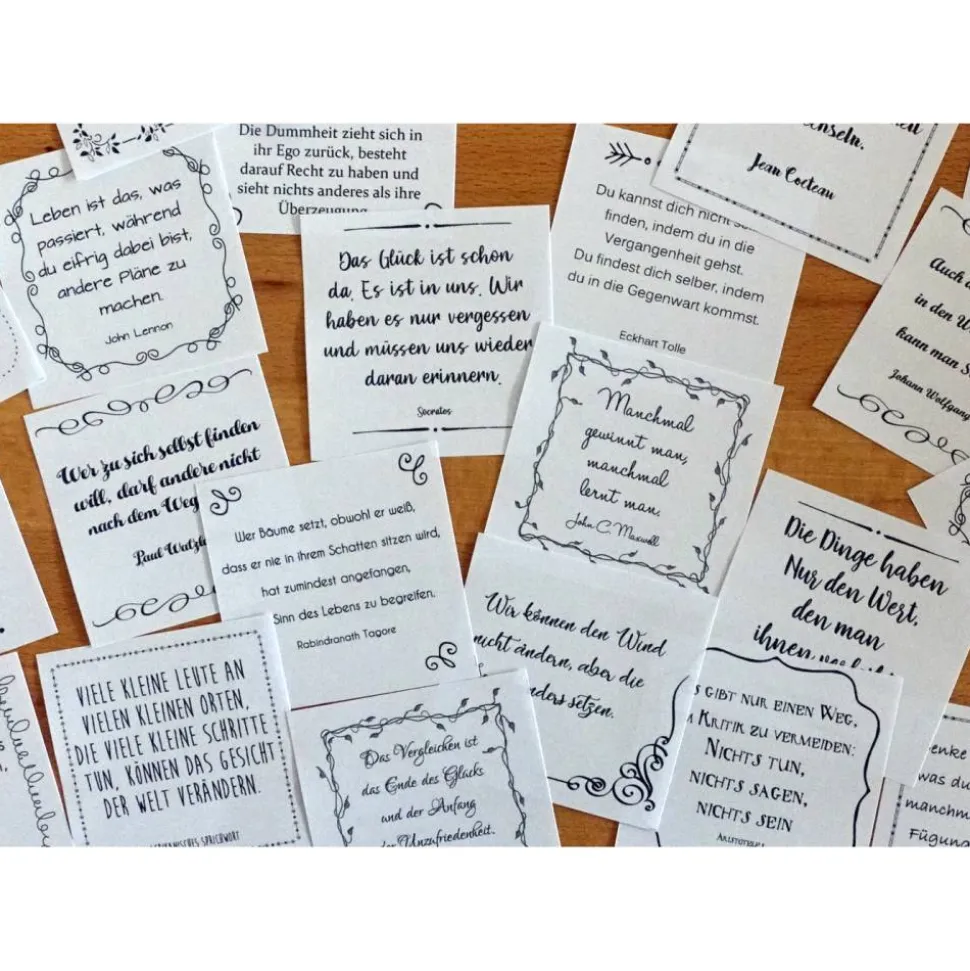 Die Dummheit zieht sich in
ihr Ego zurück, besteht
darauf Recht zu haben und
sieht nichts anderes als ihre
Überzeugung
Jean Cocteau
Leben ist das, was
passiert, während
du eifrig dabei bist,
andere Pläne zu
machen.
John Lennon
Das Glück ist schon
da. Es ist in uns. Wir
haben es nur vergessen
und müssen uns wieder
daran erinnern.
Socrates
Du kannst dich nicht
finden, indem du in die
Vergangenheit gehst.
Du findest dich selber, indem
du in die Gegenwart kommst.
Eckhart Tolle
Auch
in den W
kann man S
Johann Wolfgang
Wer zu sich selbst finden
will, darf andere nicht
nach dem Weg
Paul Watzla
Manchmal
gewinnt man,
manchmal
lernt man.
John C. Maxwell
Wer Bäume setzt, obwohl er weiß,
dass er nie in ihrem Schatten sitzen wird,
hat zumindest angefangen,
Sinn des Lebens zu begreifen.
Rabindranath Tagore
Die Dinge haben
Nur den Wert,
den man
ihnen
Wir können den Wind
nicht ändern, aber die
anders setzen.
VIELE KLEINE LEUTE AN
VIELEN KLEINEN ORTEN,
DIE VIELE KLEINE SCHRITTE
TUN, KÖNNEN DAS GESICHT
DER WELT VERÄNDERN.
SPRICHWORT
Das Vergleichen ist
das Ende des Glücks
und der Anfang
der Unzufriedenheit.
S GIBT NUR EINEN WEG,
KRITIK ZU VERMEIDEN:
NICHTS TUN,
NICHTS SAGEN,
NICHTS SEIN
enke
was du
manchm
Fügung